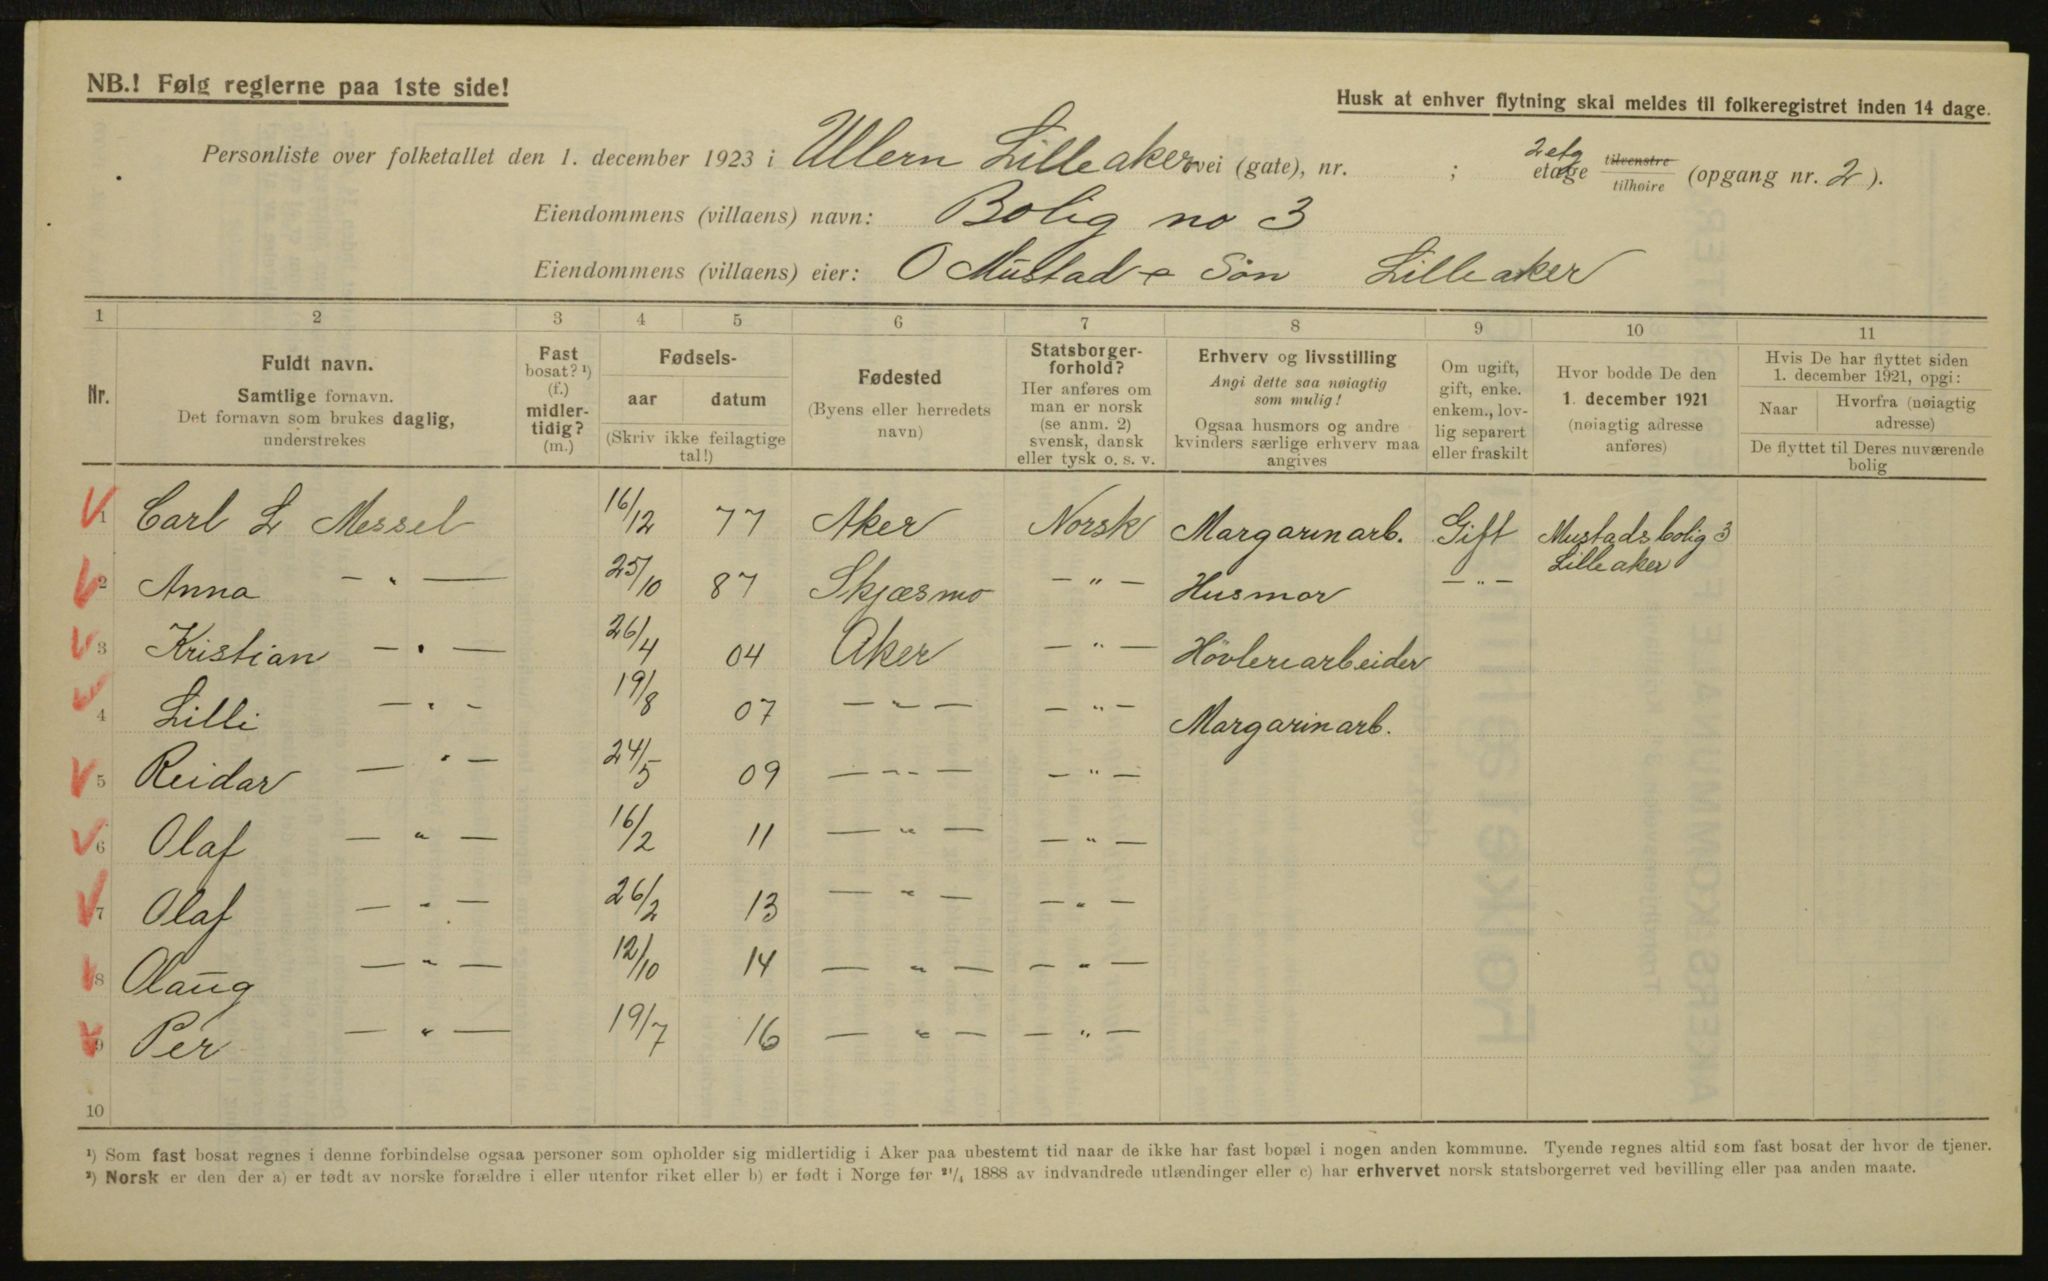 NB.! Følg reglerne paa 1ste side!
Husk at enhver flytning skal meldes til folkeregistret inden 14 dage.
Personliste over folketallet den 1. december 1923 i Ullern Lilleaker vei (gate), nr. ; 2 etg etage tilvenstre tilhøire (opgang nr. 2).
Eiendommens (villaens) navn: Bolig no 3
Eiendommens (villaens) eier: O Mustad & Søn Lilleaker
1 2 3 4 5 6 7 8 9 10 11
Nr.
Fuldt navn.
Samtlige fornavn.
Det fornavn som brukes daglig,
understrekes
Fast
bosat? ¹)
(f.)
midler-
tidig?
(m.)
Fødsels-
aar datum
(Skriv ikke feilagtige
tal!)
Fødested
(Byens eller herredets
navn)
Statsborger-
forhold?
Her anføres om
man er norsk
(se anm. 2)
svensk, dansk
eller tysk o. s. v.
Erhverv og livsstilling
Angi dette saa nøiagtig
som mulig!
Ogsaa husmors og andre
kvinders særlige erhverv maa
angives
Om ugift,
gift, enke.
enkem., lov-
lig separert
eller fraskilt
Hvor bodde De den
1. december 1921
(nøiagtig adresse
anføres)
Hvis De har flyttet siden
1. december 1921, opgi:
Naar Hvorfra (nøiagtig
adresse)
De flyttet til Deres nuværende
bolig
1 Carl L Messel 16/12 77 Aker Norsk Margarinarb. Gift Mustads bolig 3
Lilleaker
2 Anna — " — 25/10 87 Skjæsmo — " — Husmor — " —
3 Kristian — " — 26/4 04 Aker — " — Høvleriarbeider
4 Lilli — " — 19/8 07 — " — — " — Margarinarb.
5 Reidar — " — 24/5 09 — " — — " —
6 Olaf — " — 16/2 11 — " — — " —
7 Olaf — " — 26/2 13 — " — — " —
8 Olaug — " — 12/10 14 — " — — " —
9 Per — " — 19/7 16 — " — — " —
10
¹) Som fast bosat regnes i denne forbindelse ogsaa personer som opholder sig midlertidig i Aker paa ubestemt tid naar de ikke har fast bopæl i nogen anden kommune. Tyende regnes altid som fast bosat der hvor de tjener.
²) Norsk er den der a) er født av norske forældre i eller utenfor riket eller b) er født i Norge før ²¹/₄ 1888 av indvandrede utlændinger eller c) har erhvervet norsk statsborgerret ved bevilling eller paa anden maate.